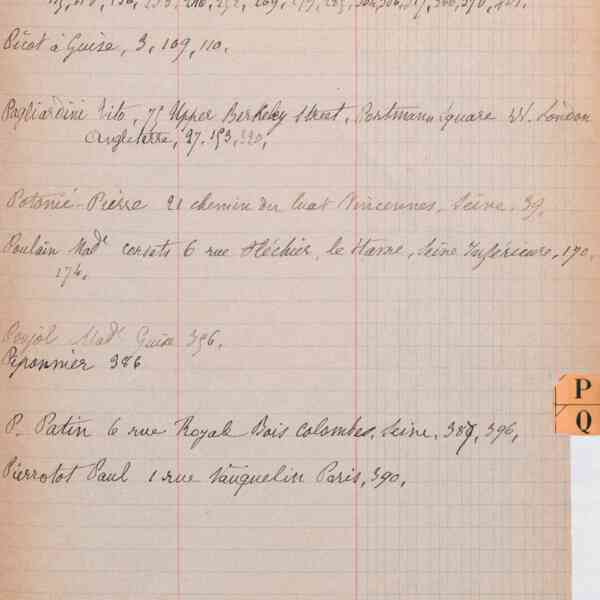 Picot à Guise, 3, 109, 110.
Pagliardini Tito, 75 Upper Berkeley Street, Portman Square W. London
Angleterre, 97. 153, 320,
Potonié-Pierre 21 chemin du Vincennes, Seine. 39,
Poulain Made corsets 6 rue Fléchier, le Havre, Seine Inférieure, 170,
174,
Poujol Made Guise 356,
Piponnier 386
P. Patin 6 rue Royale Bois Colombes, Seine, 387, 396,
Pierrotot Paul 1 rue Vauquelin Paris, 390,
P
Q